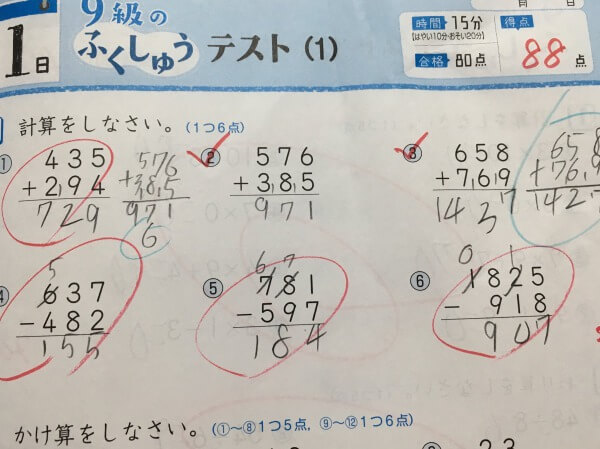 1日
9級の
ふくしゅうテスト(1)
月 日
時間 15分
【はやい10分・おそい20分】
合格 80点
得点
88点
計算をしなさい。(1つ6点)
① 435
+294
729
576
+385
971
6
② 576
+385
971
③ 658
+769
1437
658
+769
1427
④ 5
637
-482
155
⑤ 67
781
-597
184
⑥ 0 1
1825
- 918
907
かけ算をしなさい。(①~⑧1つ5点, ⑨~⑫1つ6点)
23